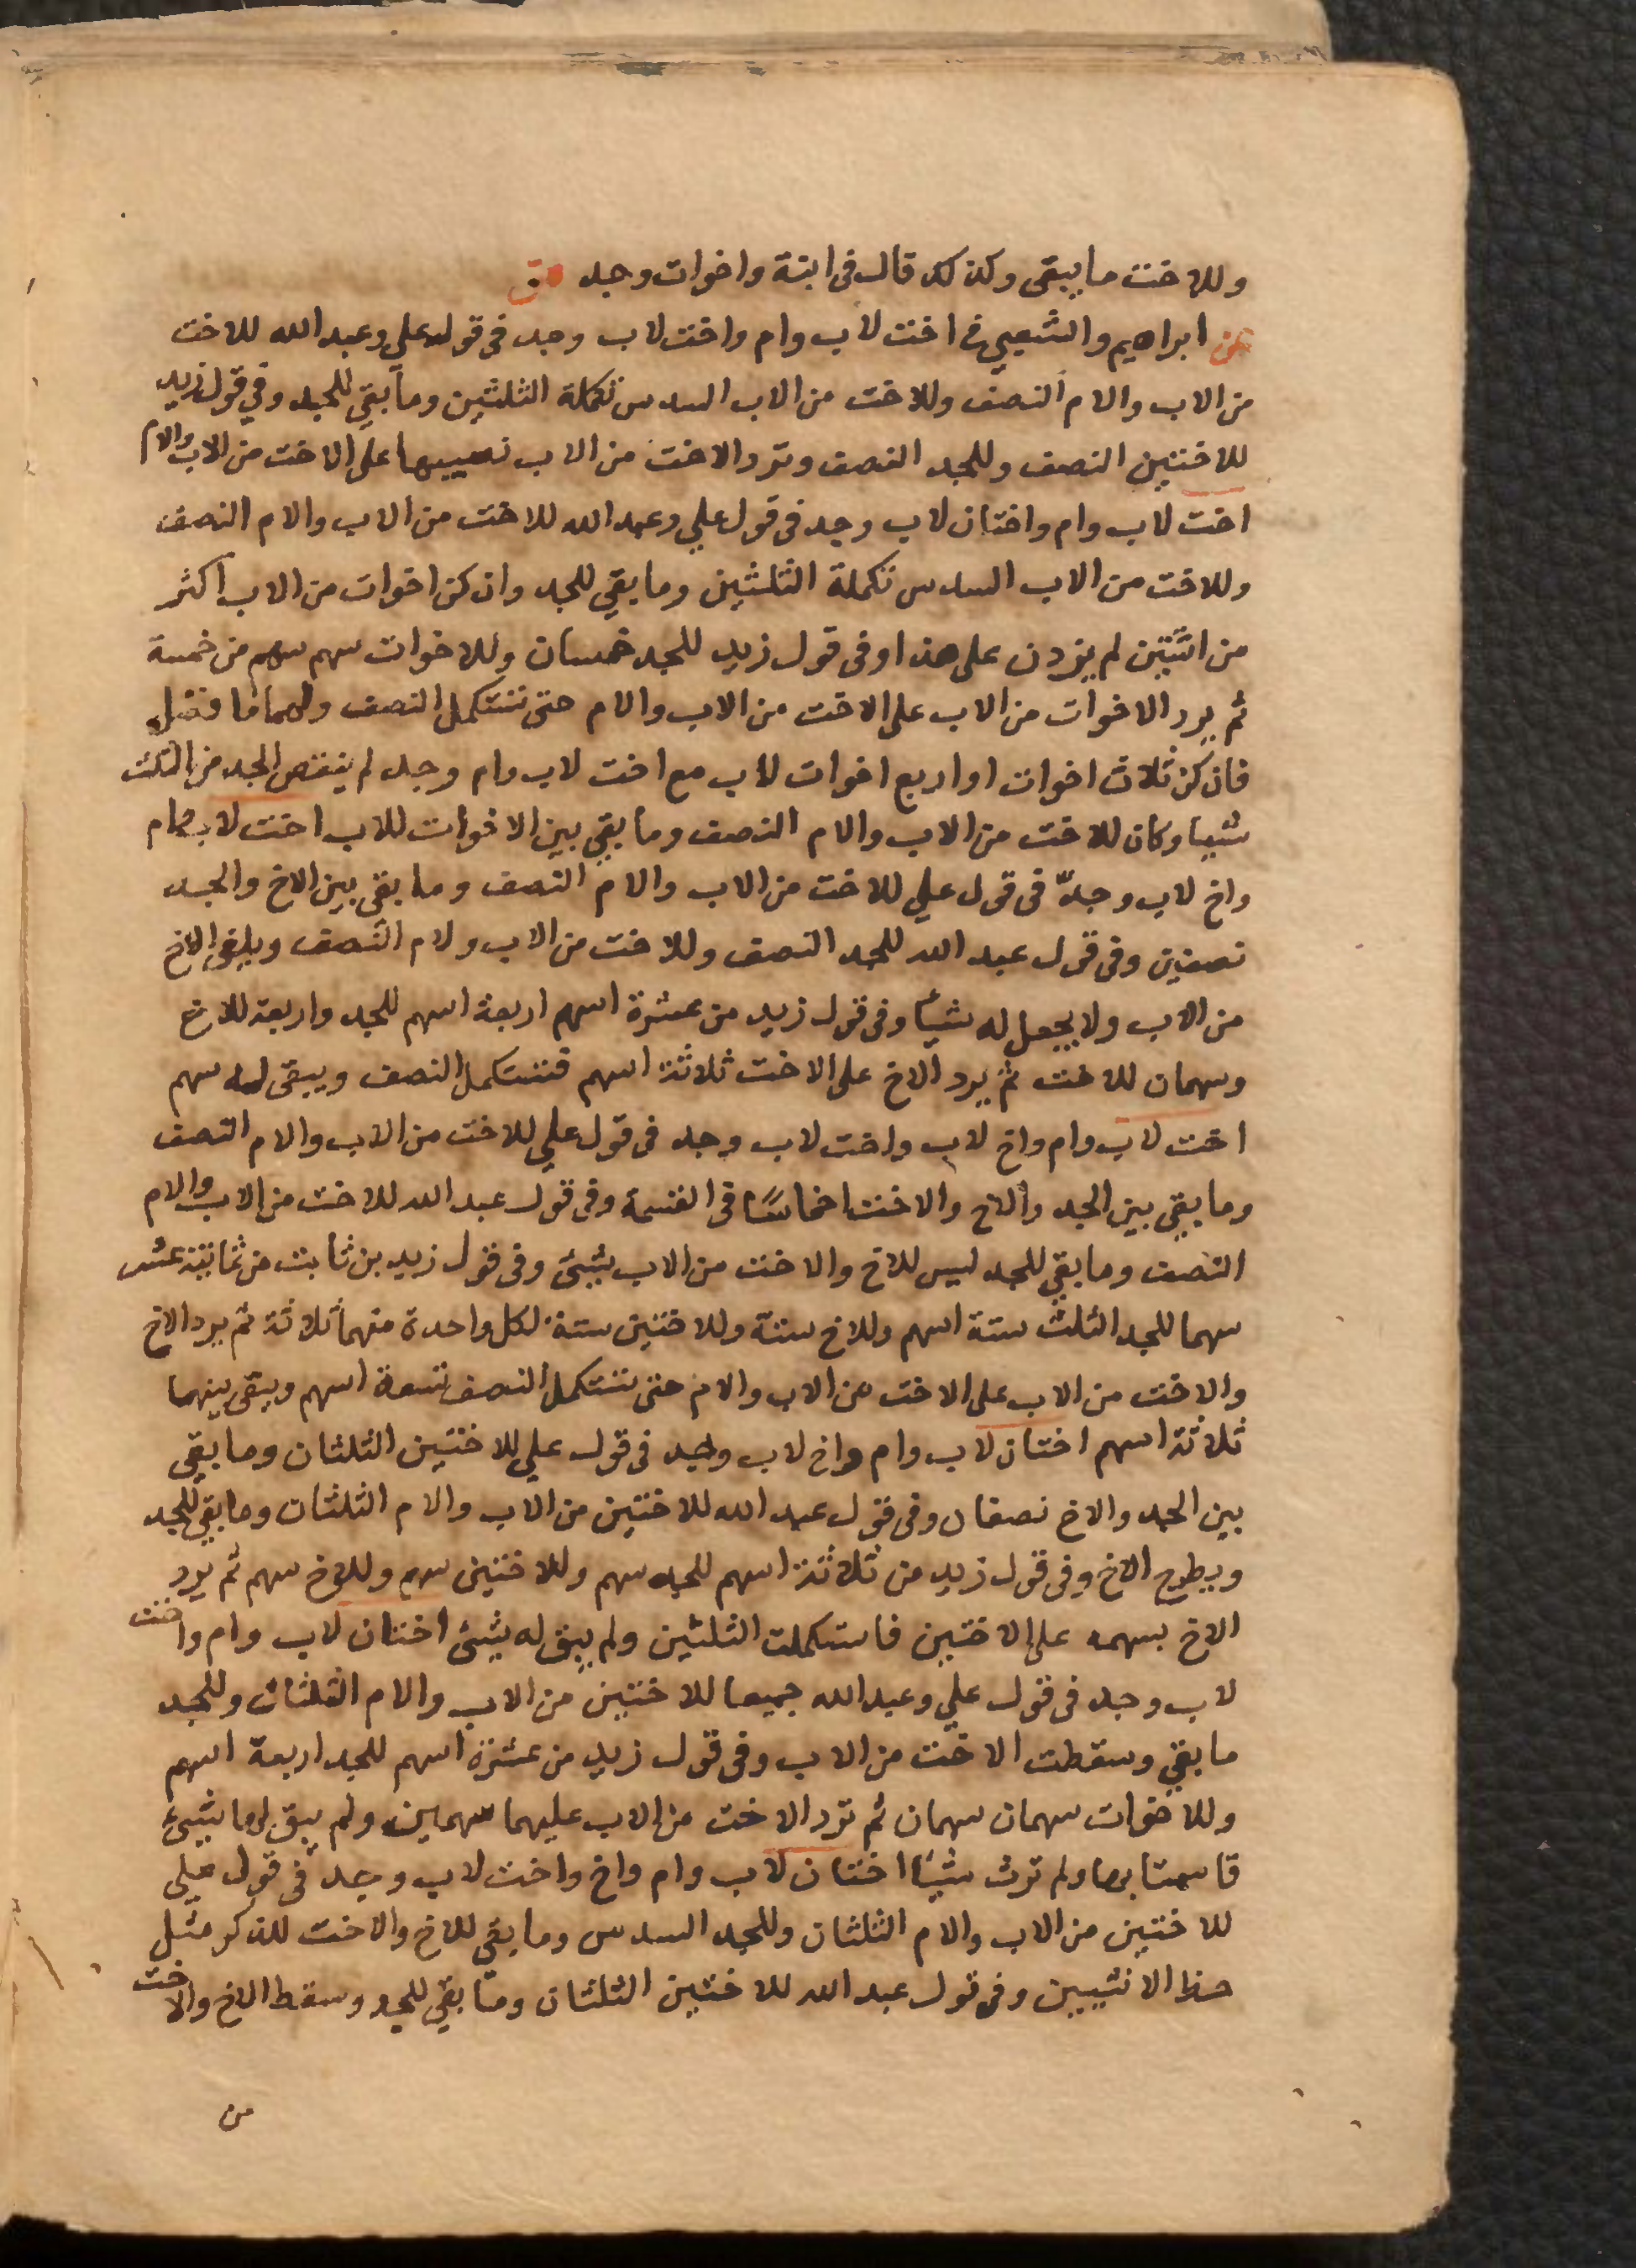 وللاخت ما يبقى وكذلك قال فى ابنة واخوات وجد ق
عن ابراهيم والشعبي فى اخت لاب وام واخت لاب وجد فى قول على وعبد الله للاخت
من الاب والام النصف وللاخت من الاب السدس تكملة الثلثين وما بقي للجد وفي قول زيد
للاختين النصف وللجد النصف وترد الاخت من الاب نصيبها على الاخت من الاب والام
اخت لاب وام واختان لاب وجد فى قول علي وعبد الله للاخت من الاب والام النصف
وللاخت من الاب السدس تكملة الثلثين وما بقي للجد وان كن اخوات من الاب اكثر
من اثنتين لم يزدن على هذا وفى قول زيد للجد خمسان وللاخوات سهم سهم من خمسة
ثم يرد الاخوات من الاب على الاخت من الاب والام حتى تستكمل النصف ولهما ما فضل
فان كن ثلاث اخوات او اربع اخوات لاب مع اخت لاب وام وجد لم ينقص الجد من الثلث
شيا وكان للاخت من الاب والام النصف وما بقي بين الاخوات للاب اخت لاب وام
واخ لاب وجد فى قول علي للاخت من الاب والام النصف وما بقى بين الاخ والجد
نصفين وفى قول عبد الله للجد النصف وللاخت من الاب ولام النصف ويلغى الاخ
من الاب ولا يجعل له شيأ وفى قول زيد من عشرة اسهم اربعة اسهم للجد واربعة للاخ
وسهمان للاخت ثم يرد الاخ على الاخت ثلاثة اسهم فتستكمل النصف ويبقى له سهم
اخت لاب وام واخ لاب واخت لاب وجد فى قول علي للاخت من الاب والام النصف
وما بقي بين الجد والاخ والاخت اخماسًا فى القسمة وفى قول عبد الله للاخت من الاب والام
النصف وما بقي للجد ليس للاخ والاخت من الاب شيئ وفى قول زيد بن ثابت من ثمانية عشر
سهما للجد الثلث ستة اسهم وللاخ ستة وللاختين ستة لكل واحدة منهما ثلاثة ثم يرد الاخ
والاخت من الاب على الاخت من الاب والام حتى تستكمل النصف تسعة اسهم ويبقى بينهما
ثلاثة اسهم اختان لاب وام واخ لاب وجد فى قول علي للاختين الثلثان وما بقي
بين الجد والاخ نصفان وفى قول عبد الله للاختين من الاب والام الثلثان وما بقي للجد
ويطرح الاخ وفى قول زيد من ثلاثة اسهم للجد سهم وللاختين سهم وللاخ سهم ثم يرد
الاخ بسهمه على الاختين فاستكملت الثلثين ولم يبق له شيئ اختان لاب وام واخت
لاب وجد فى قول علي وعبد الله جميعا للاختين من الاب والام الثلثان وللجد
ما بقي وسقطت الاخت من الاب وفى قول زيد من عشرة اسهم للجد اربعة اسهم
وللاخوات سهمان سهمان ثم ترد الاخت من الاب عليهما سهمين ولم يبق لها شيئ
قاسمتا بها ولم ترث شيئا اختان لاب وام واخ واخت لاب وجد فى قول علي
للاختين من الاب والام الثلثان وللجد السدس وما بقي للاخ والاخت للذكر مثل
حظ الانثيين وفى قول عبد الله للاختين الثلثان وما بقي للجد وسقط الاخ والاخت
من